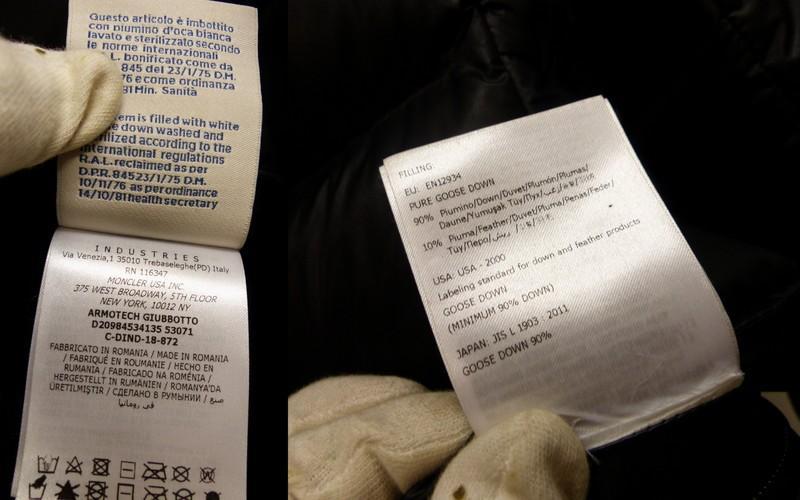 Questo articolo è imbottito
con piumino d'oca bianca
lavato e sterilizzato secondo
le norme internazionali
L. bonificato come da
845 del 23/1/75 D.M.
76 e come ordinanza
81 Min. Sanità
tem is filled with white
down washed and
ilized according to the
international regulations
R.A.L. reclaimed as per
D.P.R. 84523/1/75 D.M.
10/11/76 as per ordinance
14/10/81 health secretary
INDUSTRIES
Via Venezia,1 35010 Trebaseleghe(PD) Italy
RN 116347
MONCLER USA INC.
375 WEST BROADWAY, 5TH FLOOR
NEW YORK, 10012 NY
ARMOTECH GIUBBOTTO
D20984534135 53071
C-DIND-18-872
FABBRICATO IN ROMANIA / MADE IN ROMANIA
/ FABRIQUÉ EN ROUMANIE / HECHO EN
RUMANIA / FABRICADO NA ROMÉNIA /
HERGESTELLT IN RUMÄNIEN / ROMANYA'DA
ÜRETİLMIŞTIR / СДЕЛАНО В РУМЫНИИ / صنع
في رومانيا
FILLING:
EU: EN12934
PURE GOOSE DOWN
90% Piumino/Down/Duvet/Plumón/Plumas/
Daune/Yumuşak Tüy/Пух/
10% Piuma/Feather/Duvet/Pluma/Penas/Feder/
Tüy/Перо/ريش/
USA: USA - 2000
Labeling standard for down and feather products
GOOSE DOWN
(MINIMUM 90% DOWN)
JAPAN: JIS L 1903 : 2011
GOOSE DOWN 90%